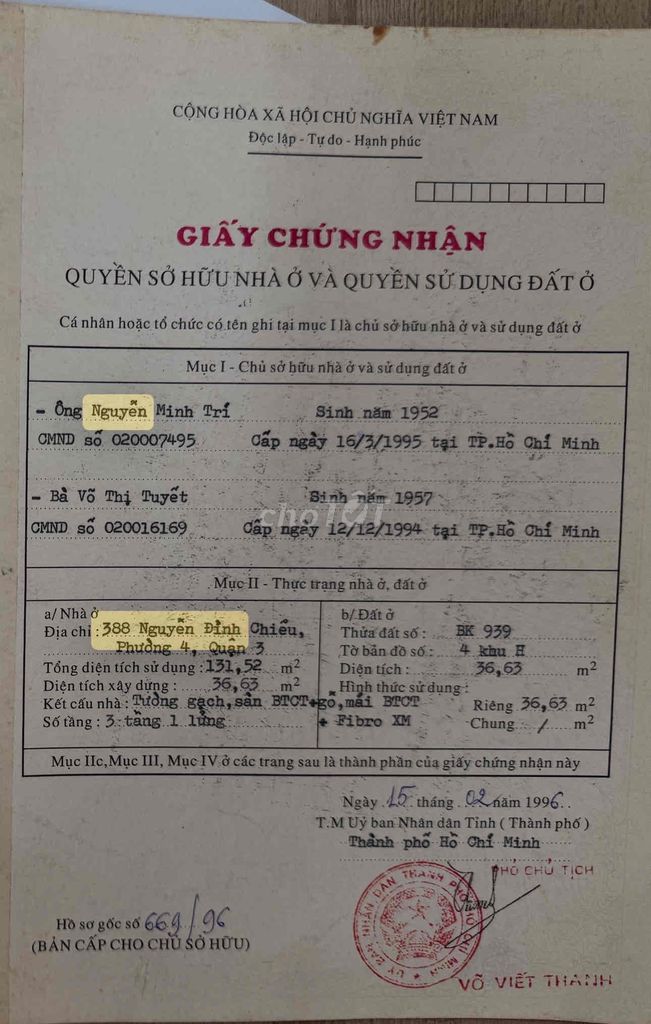 CỘNG HÒA XÃ HỘI CHỦ NGHĨA VIỆT NAM
Độc lập - Tự do - Hạnh phúc
GIẤY CHỨNG NHẬN
QUYỀN SỞ HỮU NHÀ Ở VÀ QUYỀN SỬ DỤNG ĐẤT Ở
Cá nhân hoặc tổ chức có tên ghi tại mục I là chủ sở hữu nhà ở và sử dụng đất ở
Mục I - Chủ sở hữu nhà ở và sử dụng đất ở
- Ông Nguyễn Minh Trí Sinh năm 1952
CMND số 020007495 Cấp ngày 16/3/1995 tại TP.Hồ Chí Minh
- Bà Võ Thị Tuyết Sinh năm 1957
CMND số 020016169 Cấp ngày 12/12/1994 tại TP.Hồ Chí Minh
chợTỐT
Mục II - Thực trạng nhà ở, đất ở
a/ Nhà ở
Địa chỉ : 388 Nguyễn Đình Chiểu,
Phường 4, Quận 3
Tổng diện tích sử dụng : 131,52 m²
Diện tích xây dựng : 36,63 m²
Kết cấu nhà : Tường gạch, sàn BTCT+gỗ, mái BTCT
+ Fibro XM
Số tầng : 3 tầng 1 lửng
b/ Đất ở
Thửa đất số : BK 939
Tờ bản đồ số : 4 khu H
Diện tích : 36,63 m²
Hình thức sử dụng :
Riêng 36,63 m²
Chung / m²
Mục IIc, Mục III, Mục IV ở các trang sau là thành phần của giấy chứng nhận này
Ngày 15 tháng 02 năm 1996
T.M Uỷ ban Nhân dân Tỉnh ( Thành phố )
Thành phố Hồ Chí Minh
PHÓ CHỦ TỊCH
ỦY BAN NHÂN DÂN THÀNH PHỐ HỒ CHÍ MINH
VÕ VIẾT THANH
Hồ sơ gốc số 669/96
(BẢN CẤP CHO CHỦ SỞ HỮU)